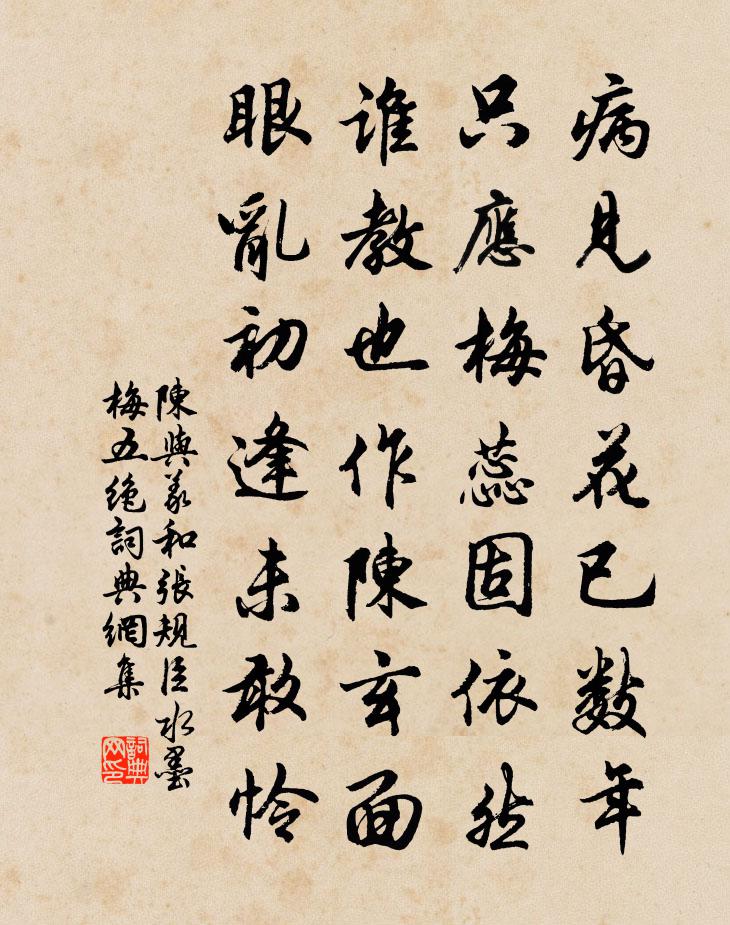 病見昏花已數年
只應梅蕊固依然
誰教也作陳玄面
眼亂初逢未敢憐
陳與義和張規臣水墨
梅五絶詞典網集
詞典
网印